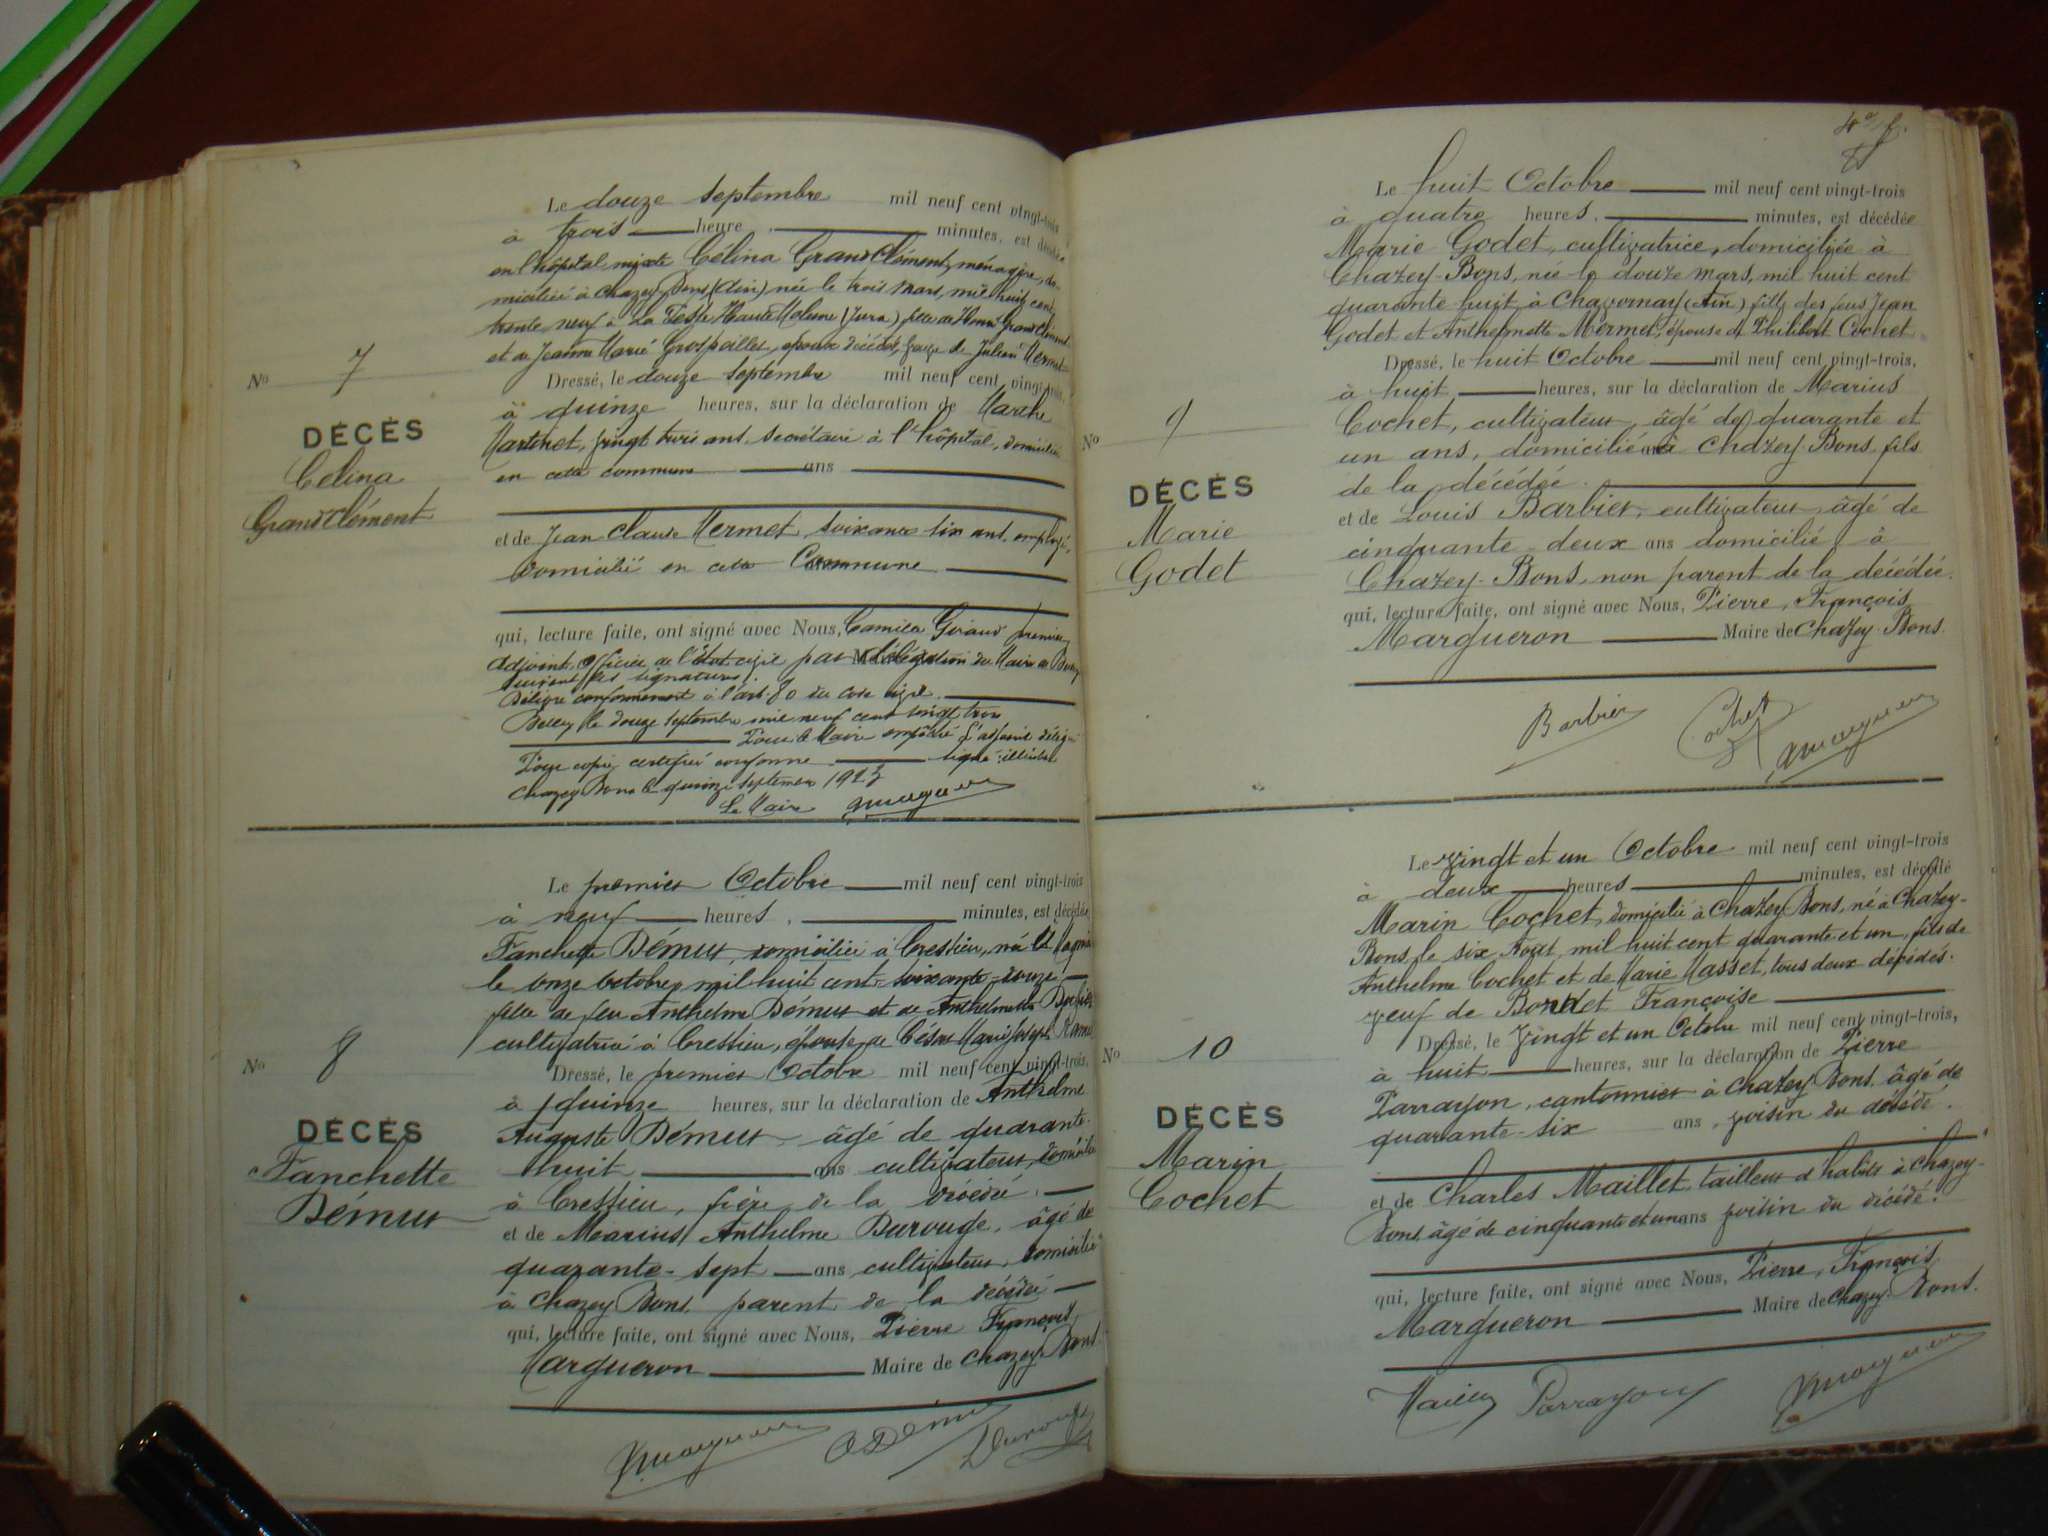 Le douze septembre mil neuf cent vingt-trois
à trois heure, minutes, est décédée
en l'hôpital mixte Célina GrandClément, ménagère, do-
miciliée à Chazey Bons (Ain) née le trois Mars, mil huit cent
trente neuf à La (Jura) fille de Henri GrandClément
et de Jeanne Marie époux décédés, de Julien Mermet
No 7
Dressé, le douze septembre mil neuf cent vingt-trois,
à quinze heures, sur la déclaration de Marthe
Martinet, vingt trois ans secrétaire à l'hôpital, domiciliée
en cette commune ans
DÉCÈS
Célina
GrandClément
et de Jean Claude Mermet soixante six ans, employé,
domicilié en cette Commune
qui, lecture faite, ont signé avec Nous, Camille Giraud premier
adjoint officier de l'état civil par délégation du Maire de Belley
suivent les signatures).
Délivré conformément à l'art. 80 du code civil
Belley le douze septembre mil neuf cent vingt trois
Pour le Maire empêché l'adjoint délégué
Pour copie certifiée conforme signé: illisible
Chazey Bons le quinze septembre 1923
Le Maire
Le premier Octobre mil neuf cent vingt-trois
à neuf heures, minutes, est décédée
Fanchette Démur domiciliée à Cressieu, née à
le onze octobre mil huit cent soixante-douze
fille de feu Anthelme Démur et de Anthelmette
cultivatrice à Cressieu, épouse de César Marie Joseph
No 8
Dressé, le premier Octobre mil neuf cent vingt-trois,
à quinze heures, sur la déclaration de Anthelme
Auguste Démur âgé de quarante-
huit ans cultivateur, domicilié
à Cressieu, frère de la décédée
DÉCÈS
Fanchette
Démur
et de Marius Anthelme Durouge, âgé de
quarante-sept ans cultivateur, domicilié
à Chazey Bons parent de la décédée
qui, lecture faite, ont signé avec Nous, Pierre François
Margueron Maire de Chazey-Bons
Démur
Le huit Octobre mil neuf cent vingt-trois
à quatre heures, minutes, est décédée
Marie Godet, cultivatrice, domiciliée à
Chazey-Bons, née le douze mars, mil huit cent
quarante huit à Chavornay (Ain) fille des feus Jean
Godet et Anthelmette Mermet, épouse de Philibert Cochet
Dressé, le huit Octobre mil neuf cent vingt-trois,
à huit, heures, sur la déclaration de Marius
Cochet, cultivateur, âgé de quarante et
un ans, domicilié à Chazey Bons fils
de la décédée.
No 9
DÉCÈS
Marie
Godet
et de Louis Barbier, cultivateur âgé de
cinquante-deux ans domicilié à
Chazey-Bons, non parent de la décédée.
qui, lecture faite, ont signé avec Nous, Pierre, François
Margueron Maire de Chazey-Bons
Barbier Cochet
Le vingt et un Octobre mil neuf cent vingt-trois
à deux heures minutes, est décédé
Marin Cochet, domicilié à Chazey Bons, né à Chazey-
Bons, le six Août, mil huit cent quarante et un, fils de
Anthelme Cochet et de Marie Masset, tous deux décédés.
veuf de Bondet Françoise
No 10
Dressé, le vingt et un Octobre mil neuf cent vingt-trois,
à huit heures, sur la déclaration de Pierre
Parrayon, cantonnier à Chazey Bons âgé de
quarante-six ans, voisin du décédé.
DÉCÈS
Marin
Cochet
et de Charles Maillet, tailleur d'habits à Chazey-
Bons âgé de cinquante et un ans voisin du décédé.
qui, lecture faite, ont signé avec Nous, Pierre, François
Margueron Maire de Chazey Bons.
Parrayon